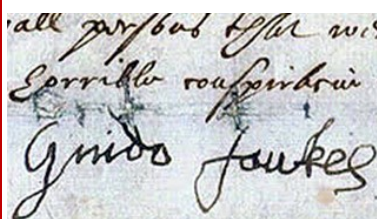 all persons that wi
horrible conspiracie
Guido fawkes